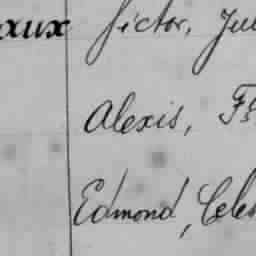 aux Victor, Jul
Alexis, Fs
Edmond, Celes